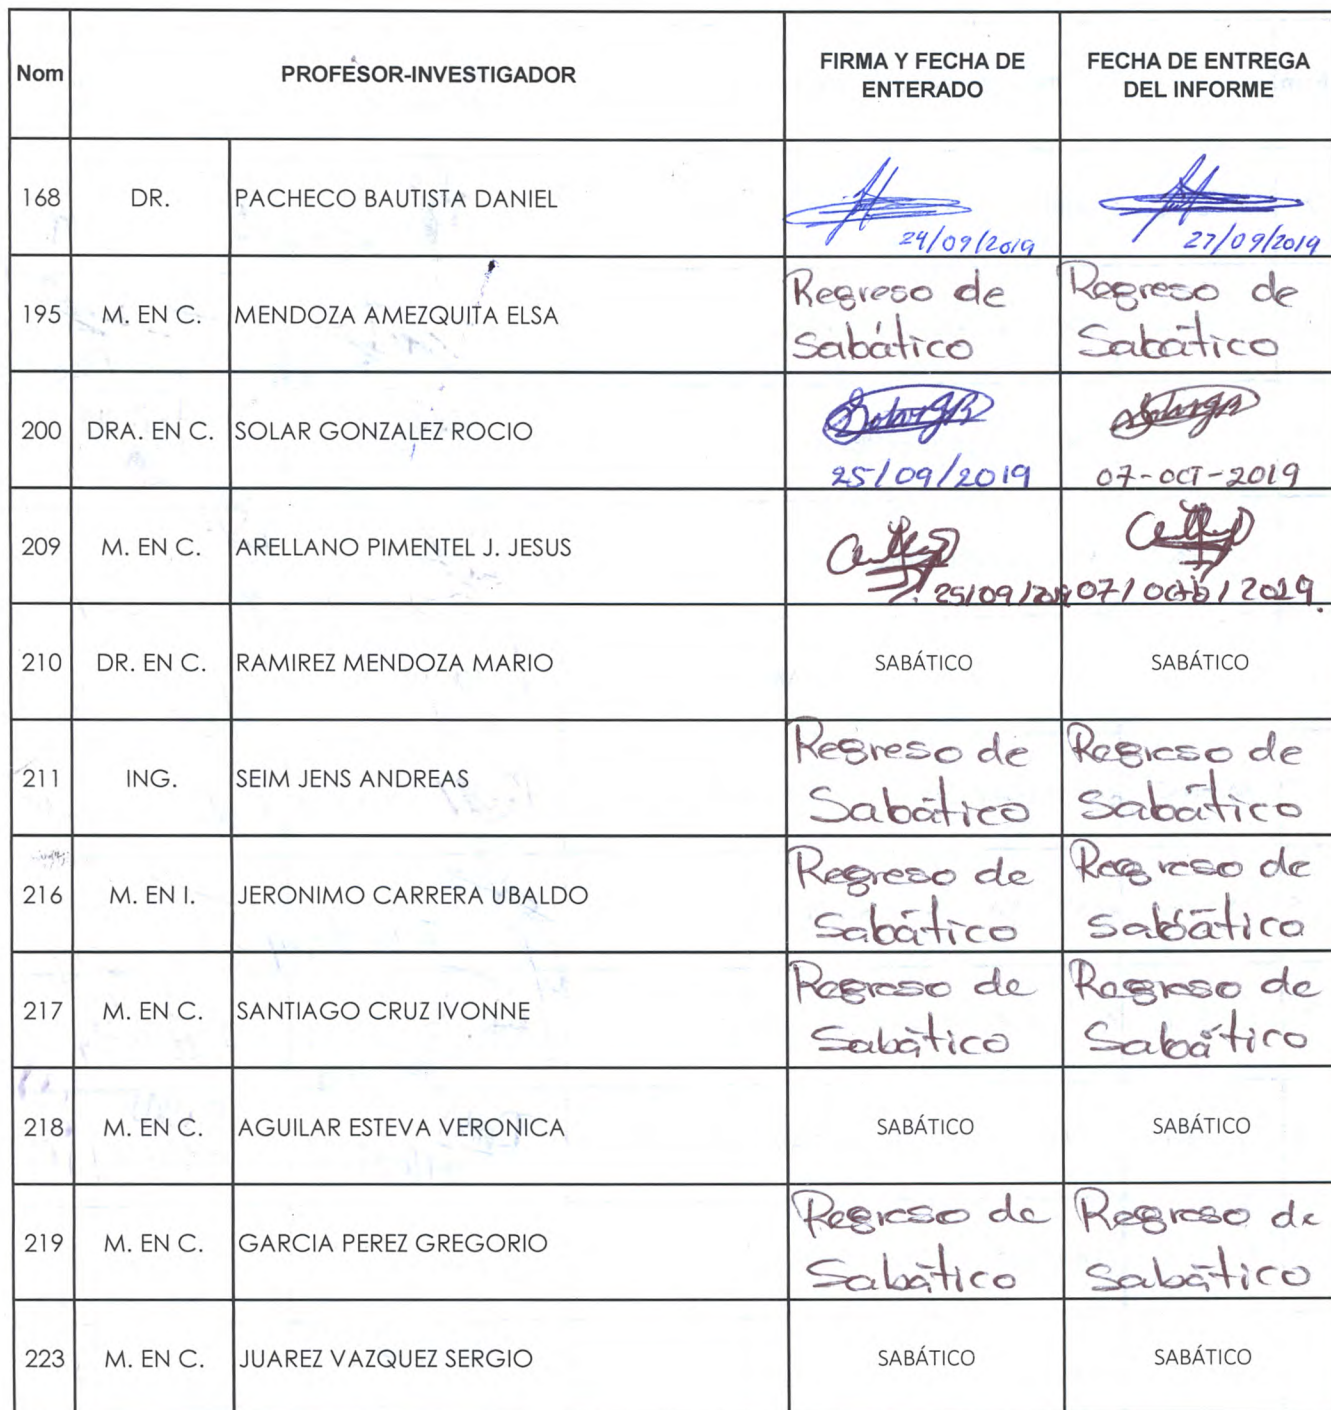 Nom PROFESOR-INVESTIGADOR FIRMA Y FECHA DE ENTERADO FECHA DE ENTREGA DEL INFORME
168 DR. PACHECO BAUTISTA DANIEL 24/09/2019 27/09/2019
195 M. EN C. MENDOZA AMEZQUITA ELSA Regreso de Sabático Regreso de Sabático
200 DRA. EN C. SOLAR GONZALEZ ROCIO 25/09/2019 07-OCT-2019
209 M. EN C. ARELLANO PIMENTEL J. JESUS 25/09/2019 07/Octb/2019.
210 DR. EN C. RAMIREZ MENDOZA MARIO SABÁTICO SABÁTICO
211 ING. SEIM JENS ANDREAS Regreso de Sabático Regreso de Sabático
216 M. EN I. JERONIMO CARRERA UBALDO Regreso de Sabático Regreso de Sabático
217 M. EN C. SANTIAGO CRUZ IVONNE Regreso de Sabático Regreso de Sabático
218 M. EN C. AGUILAR ESTEVA VERONICA SABÁTICO SABÁTICO
219 M. EN C. GARCIA PEREZ GREGORIO Regreso de Sabático Regreso de Sabático
223 M. EN C. JUAREZ VAZQUEZ SERGIO SABÁTICO SABÁTICO